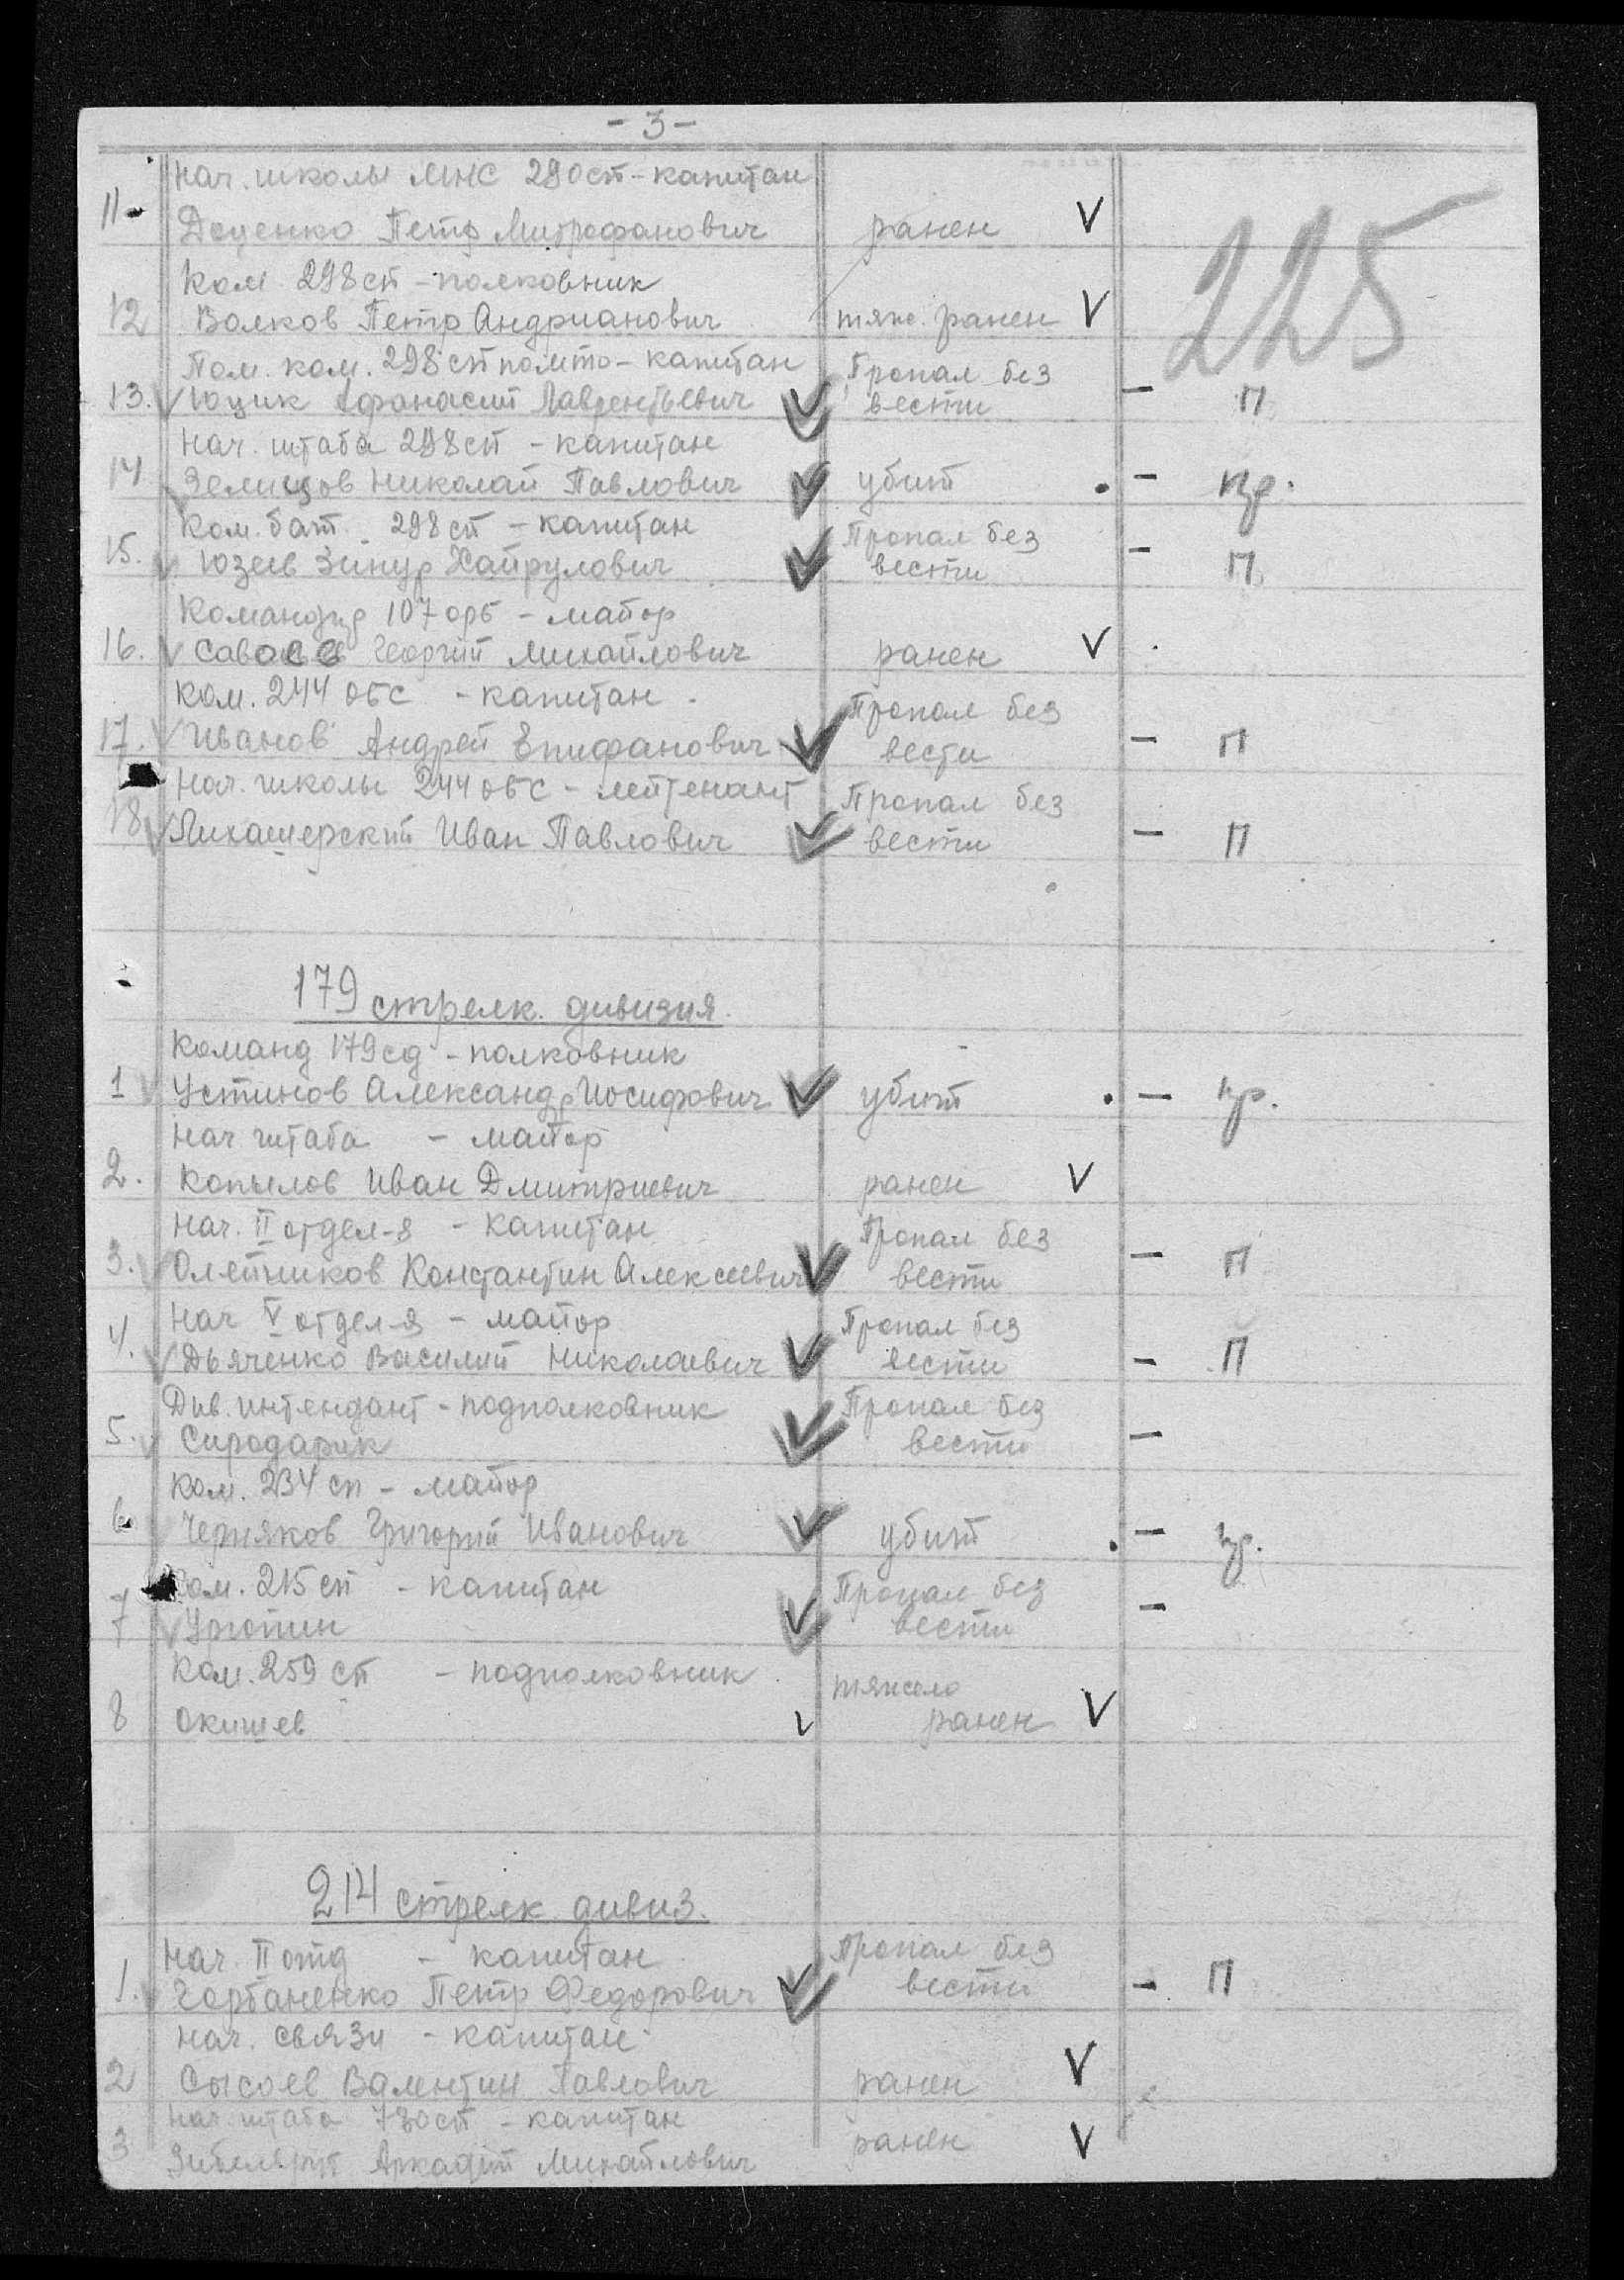 - 3 -
Нач. школы МНС 290сп - капитан
225
11. Доценко Петр Митрофанович ранен V
Ком. 298сп - полковник
12 Волков Петр Андрианович тяж. ранен V
Пом. ком. 298сп по мто - капитан Пропал без
13. Юцик Афанасий Лаврентьевич вести - П
Нач. штаба 298сп - капитан
14 Земицов Николай Павлович убит - пр.
Ком. бат. 298 сп - капитан Пропал без
15. Юзеев Зинур Хайрулович вести - П
Командир 107 орб - майор
16. Георгий Михайлович ранен V
Ком. 244 обс - капитан Пропал без
17. Иванов Андрей Епифанович вести - П
Нач. школы 244 обс - лейтенант Пропал без
18 Иван Павлович вести - П
179 стрелк. дивизия.
Команд 179сд - полковник
1 Устинов Александр Иосифович убит - пр.
Нач. штаба - майор
2. Копылов Иван Дмитриевич ранен V
Нач. II отдел-я - капитан Пропал без
3. Олейников Константин Алексеевич вести - П
Нач V отдел-я - майор Пропал без
4. Дьяченко Василий Николаевич вести - П
Див. интендант - подполковник Пропал без
5. вести -
Ком. 234 сп - майор
6 Черняков Григорий Иванович убит - пр.
Ком. 215 сп - капитан Пропал без
7 вести -
Ком. 259 сп - подполковник тяжело
8 Окишев V ранен V
214 стрелк. дивиз.
Нач. II отд - капитан Пропал без
1. Горбаненко Петр Федорович вести - П
Нач. связи - капитан
2 Сысоев Валентин Павлович ранен V
Нач. штаба 780сп - капитан
3 Аркадий Михайлович ранен V